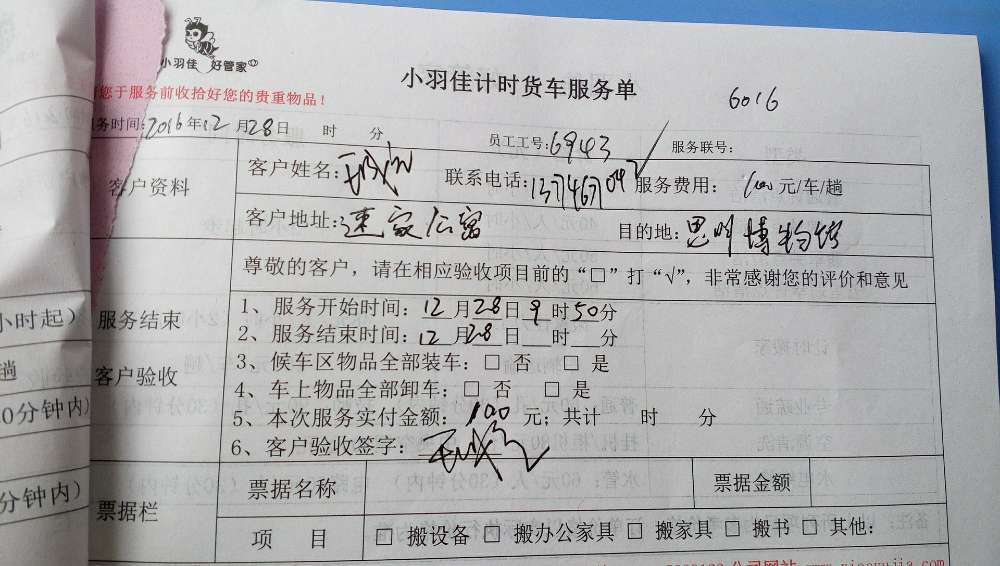 小羽佳 好管家
小羽佳计时货车服务单
6016
您于服务前收拾好您的贵重物品！
务时间：2016年12月28日 时 分 员工工号：6943 服务联号：
客户资料 客户姓名： 联系电话： 服务费用：100元/车/趟
客户地址：速家公寓 目的地：思明博物馆
尊敬的客户，请在相应验收项目前的“□”打“√”，非常感谢您的评价和意见
服务结束
客户验收
1、服务开始时间：12月28日9时50分
2、服务结束时间：12月28日 时 分
3、候车区物品全部装车：□ 否 □ 是
4、车上物品全部卸车：□ 否 □ 是
5、本次服务实付金额：100元；共计 时 分
6、客户验收签字：
票据栏 票据名称 票据金额
项 目 □ 搬设备 □ 搬办公家具 □ 搬家具 □ 搬书 □ 其他：
小时起）
趟
0分钟内）
分钟内）
公司网站